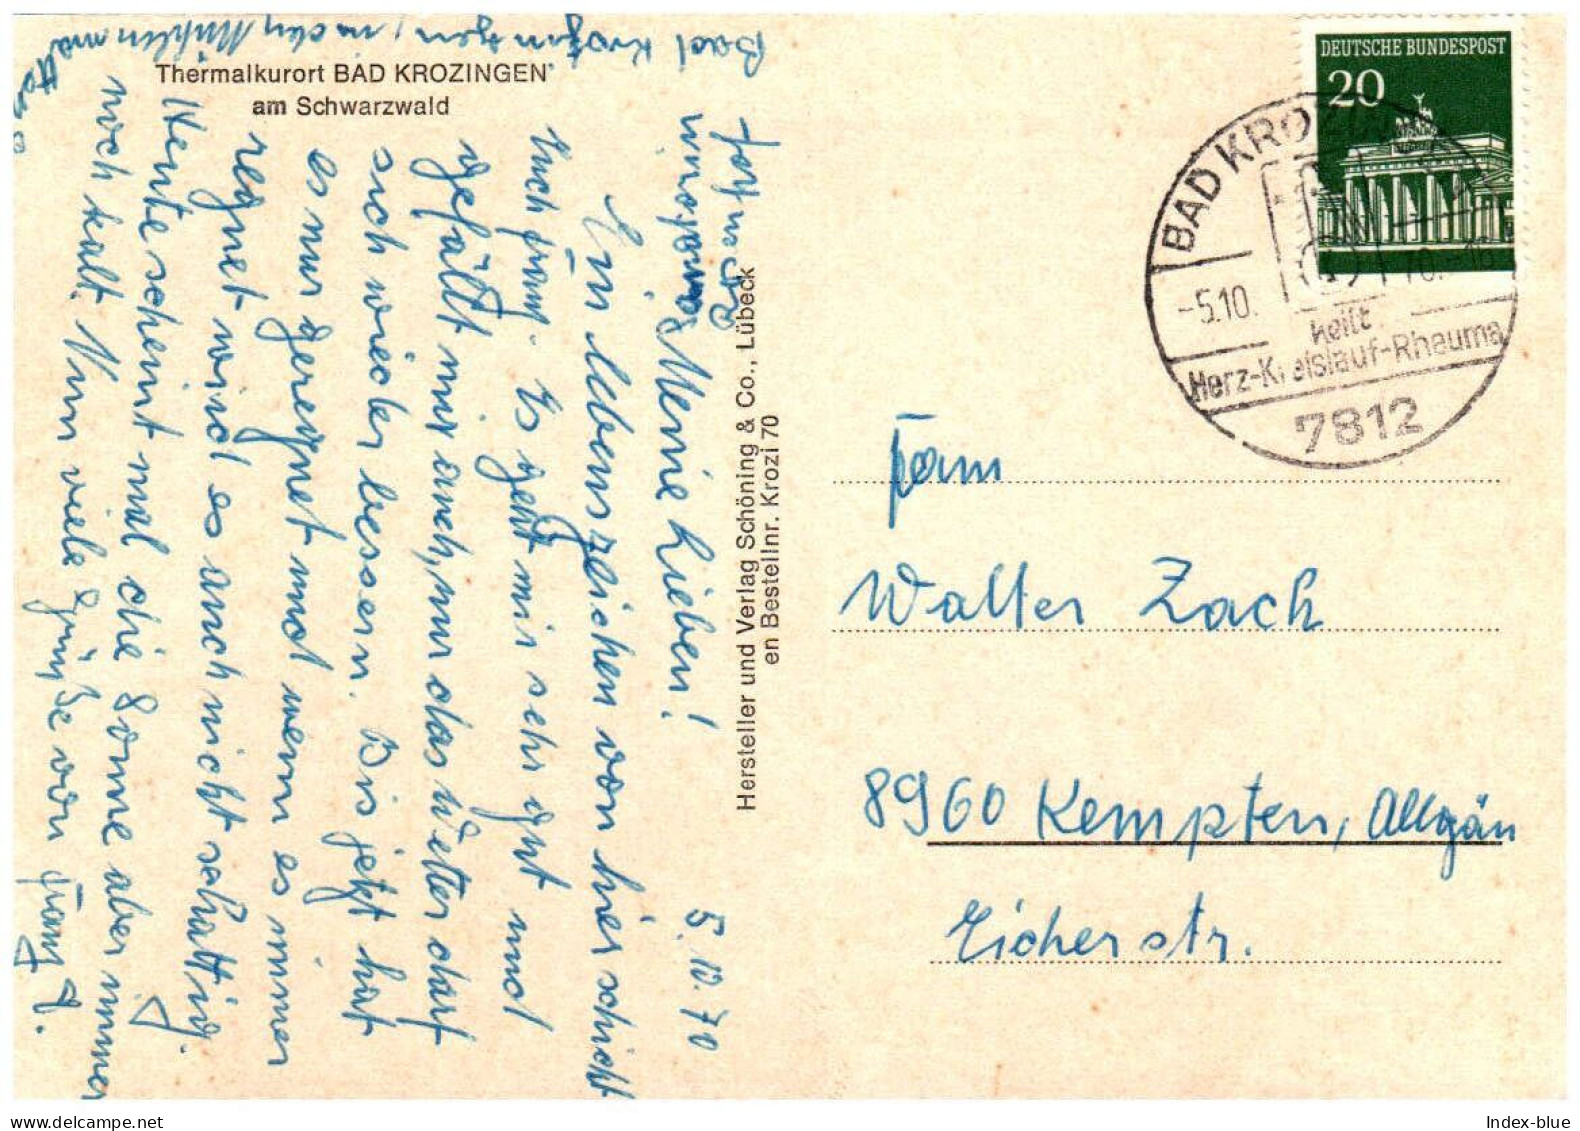 Thermalkurort BAD KROZINGEN
am Schwarzwald
Bad Krozingen, in den Mühlenmatten
5.10.70
Meine Lieben!
Ein Lebenszeichen von hier schickt
Euch franz. Es geht mir sehr gut und
gefällt mir auch, nur das Wetter darf
sich wieder bessern. Bis jetzt hat
es nur geregnet und wenn es immer
regnet wird es auch nicht schattig.
Heute scheint mal die Sonne aber immer
noch kalt. Nun viele Grüße von franz
Hersteller und Verlag Schöning & Co., Lübeck
en Bestellnr. Krozi 70
DEUTSCHE BUNDESPOST
20
BAD KROZ
-5.10.
heilt
Herz-Kreislauf-Rheuma
7812
Fam
Walter Zach
8960 Kempten, Allgäu
Eicherstr.
Index-blue
www.delcampe.net